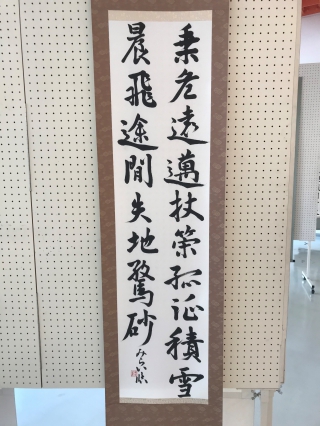 乗危遠邁杖策孤征積雪
晨飛途間失地驚砂